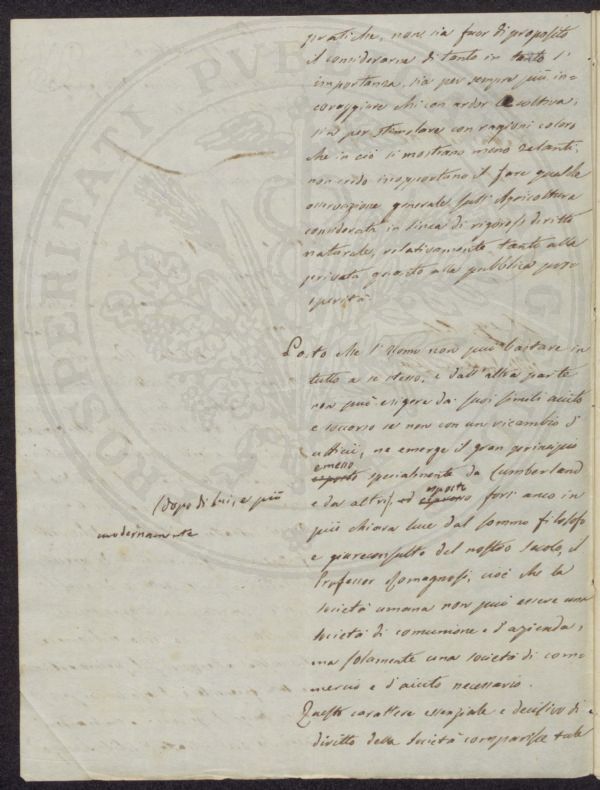 pratiche, non sia fuor di proposito
il considerarne di tanto in tanto l'
importanza, sia per sempre più in-
coraggiare chi con ardor la coltiva;
sia per stimolare con ragioni coloro
che in ciò si mostrano meno zelanti;
non credo inopportuno il fare qualche
osservazione generale sull'Agricoltura
considerata in linea di rigoroso diritto
naturale, relativamente tanto alla
privata quanto alla pubblica pros-
perità.
Posto che l'Uomo non può bastare in
tutto a se stesso, e dall'altra parte
non può esigere da' suoi simili aiuto
e soccorso se non con un ricambio d'
ufficii, ne emerge il gran principio
emesso
esposto specialmente da Cumberland
esposto
e da altri, ed espresso forse anco in
(dopo di lui, e più
modernamente
più chiara luce dal sommo filosofo
e giureconsulto del nostro secolo, il
Professor Romagnosi, cioè che la
società umana non può essere una
società di comunione e d'azienda,
ma solamente una società di com-
mercio e d'aiuto necessario.
Questo carattere essenziale e decisivo di
diritto della società comparisce tale
PROSPERITATI PUBL